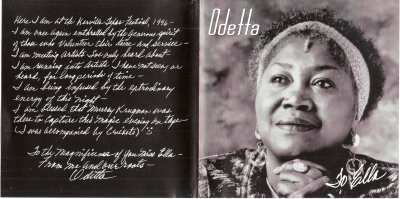 Here I am at the Kerrville Folk Festival, 1996 -
I am once again enthralled by the generous spirit
of those who Volunteer their time and service -
I am meeting Artists I've only heard about
I am running into Artists I have not seen, or
heard, for long periods of time
I am being infused by the extrodinary
energy of this night -
I am blessed that Murray Krugman was
there to Capture this Magic evening on tape
(I was accompanied by Crickets)
To the Magnificence of You Miss Ella -
From me and our roots -
Odetta
Odetta
To Ella